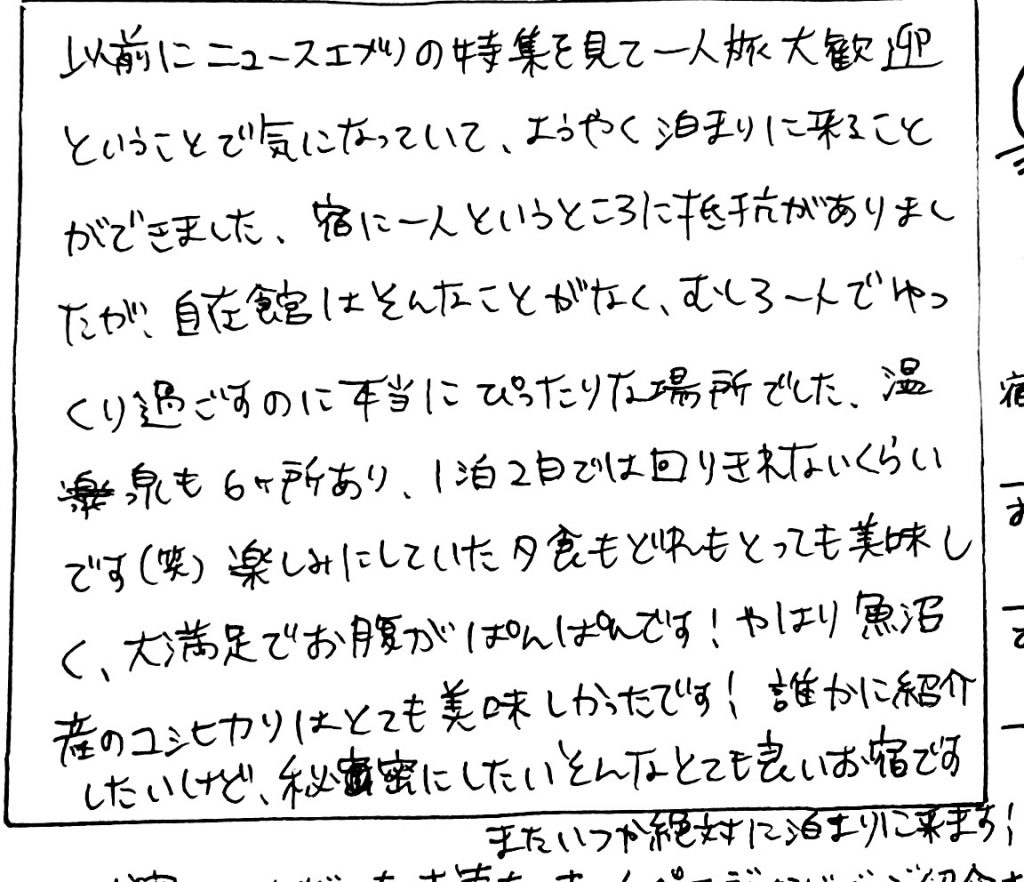 以前にニュースエブリの特集を見て一人旅大歓迎
ということで気になっていて、ようやく泊まりに来ること
ができました、宿に一人というところに抵抗がありまし
たが、自在館はそんなことがなく、むしろ一人でゆっ
くり過ごすのに本当にぴったりな場所でした、温
泉も6ヶ所あり、1泊2日では回りきれないくらい
です(笑)楽しみにしていた夕食もどれもとっても美味し
く、大満足でお腹がぱんぱんです!やはり魚沼
産のコシヒカリはとても美味しかったです!誰かに紹介
したいけど、秘密にしたいそんなとても良いお宿です
またいつか絶対に泊まりに来ます!